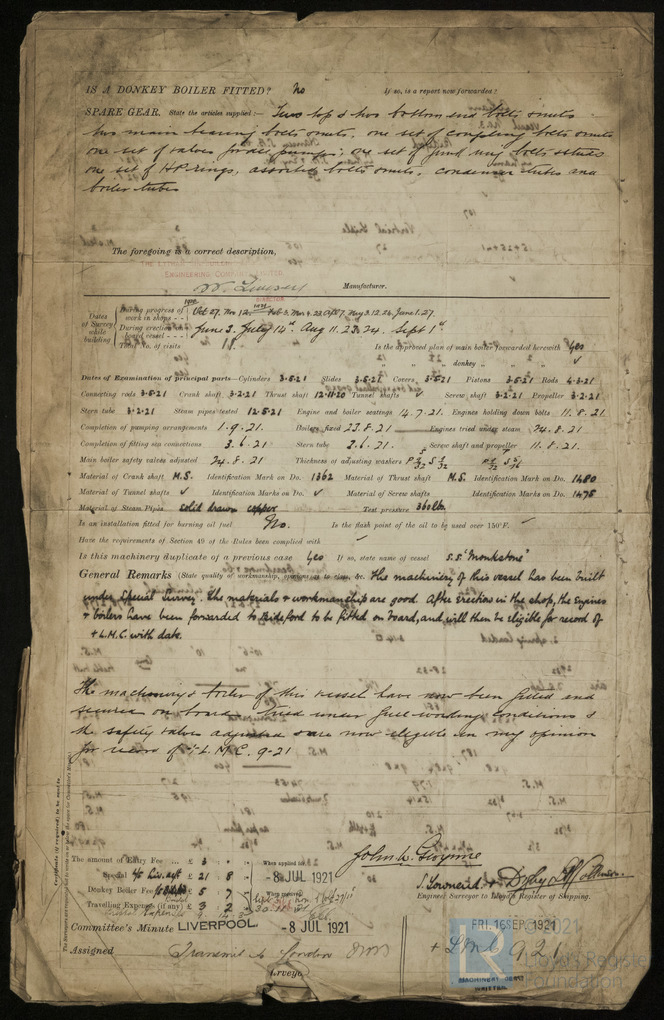 IS A DONKEY BOILER FITTED? No If so, is a report now forwarded?
SPARE GEAR. State the articles supplied:— Two top & two bottom end bolts & nuts
two main bearing bolts & nuts, one set of coupling bolts & nuts
one set of valves for all pumps, one set of junk ring bolts & studs
one set of H.P. rings, assorted bolts & nuts, condenser tubes and
boiler tubes
The foregoing is a correct description,
ENGINEERING COMPANY LIMITED
Manufacturer.
DIRECTOR
Dates of Survey while building
During progress of work in shops 1920 Oct 27. Nov 12. 1921 Feb 3. Mar 4. 23. Apl 7. May 3. 12. 24. June 1. 27.
During erection on board vessel June 3. July 14th. Aug 11. 23. 24. Sept 1st.
Total No. of visits 18 Is the approved plan of main boiler forwarded herewith Yes
" " " donkey " " ✓
Dates of Examination of principal parts—Cylinders 3.5.21 Slides 3.5.21 Covers 3.5.21 Pistons 3.5.21 Rods 4.3.21
Connecting rods 3.5.21 Crank shaft 3.2.21 Thrust shaft 12.11.20 Tunnel shafts ✓ Screw shaft 3.2.21 Propeller 3.2.21
Stern tube 3.2.21 Steam pipes tested 12.5.21 Engine and boiler seatings 14.7.21. Engines holding down bolts 11.8.21
Completion of pumping arrangements 1.9.21. Boilers fixed 23.8.21 Engines tried under steam 24.8.21
Completion of fitting sea connections 3.6.21 Stern tube 3.6.21. Screw shaft and propeller 11.8.21.
Main boiler safety valves adjusted 24.8.21 Thickness of adjusting washers
Material of Crank shaft M.S. Identification Mark on Do. 1362 Material of Thrust shaft M.S. Identification Mark on Do. 1480
Material of Tunnel shafts ✓ Identification Marks on Do. ✓ Material of Screw shafts Identification Marks on Do. 1475
Material of Steam Pipes solid drawn copper Test pressure 360 lbs
Is an installation fitted for burning oil fuel No. Is the flash point of the oil to be used over 150°F.
Have the requirements of Section 49 of the Rules been complied with
Is this machinery duplicate of a previous case Yes If so, state name of vessel S.S. "Monkstone"
General Remarks (State quality of workmanship, opinions as to class, &c. The machinery of this vessel has been built
under Special survey. The materials & workmanship are good. After erection in the shop, the Engines
& boilers have been forwarded to Bideford to be fitted on board, and will then be eligible for record of
+ L.M.C. with date.
The machinery & boiler of this vessel have now been fitted and
secured on board, tried under full working conditions &
the safety valves adjusted & are now eligible in my opinion
for record of + L.M.C. 9-21
Certificate (if required) to be sent to
The amount of Entry Fee ... £ 3
Special £ 21 8 When applied for,
8 JUL 1921
Donkey Boiler Fee £ 5 7 When received,
Travelling Expenses (if any) £ 3 2
Engineer Surveyor to Lloyd's Register of Shipping.
Committee's Minute LIVERPOOL. -8 JUL 1921
FRI. 16 SEP. 1921
Assigned Transmit to London + L.M.C. 9.21
MACHINERY CERT.
WRITTEN
© 2021
Lloyd's Register
Foundation